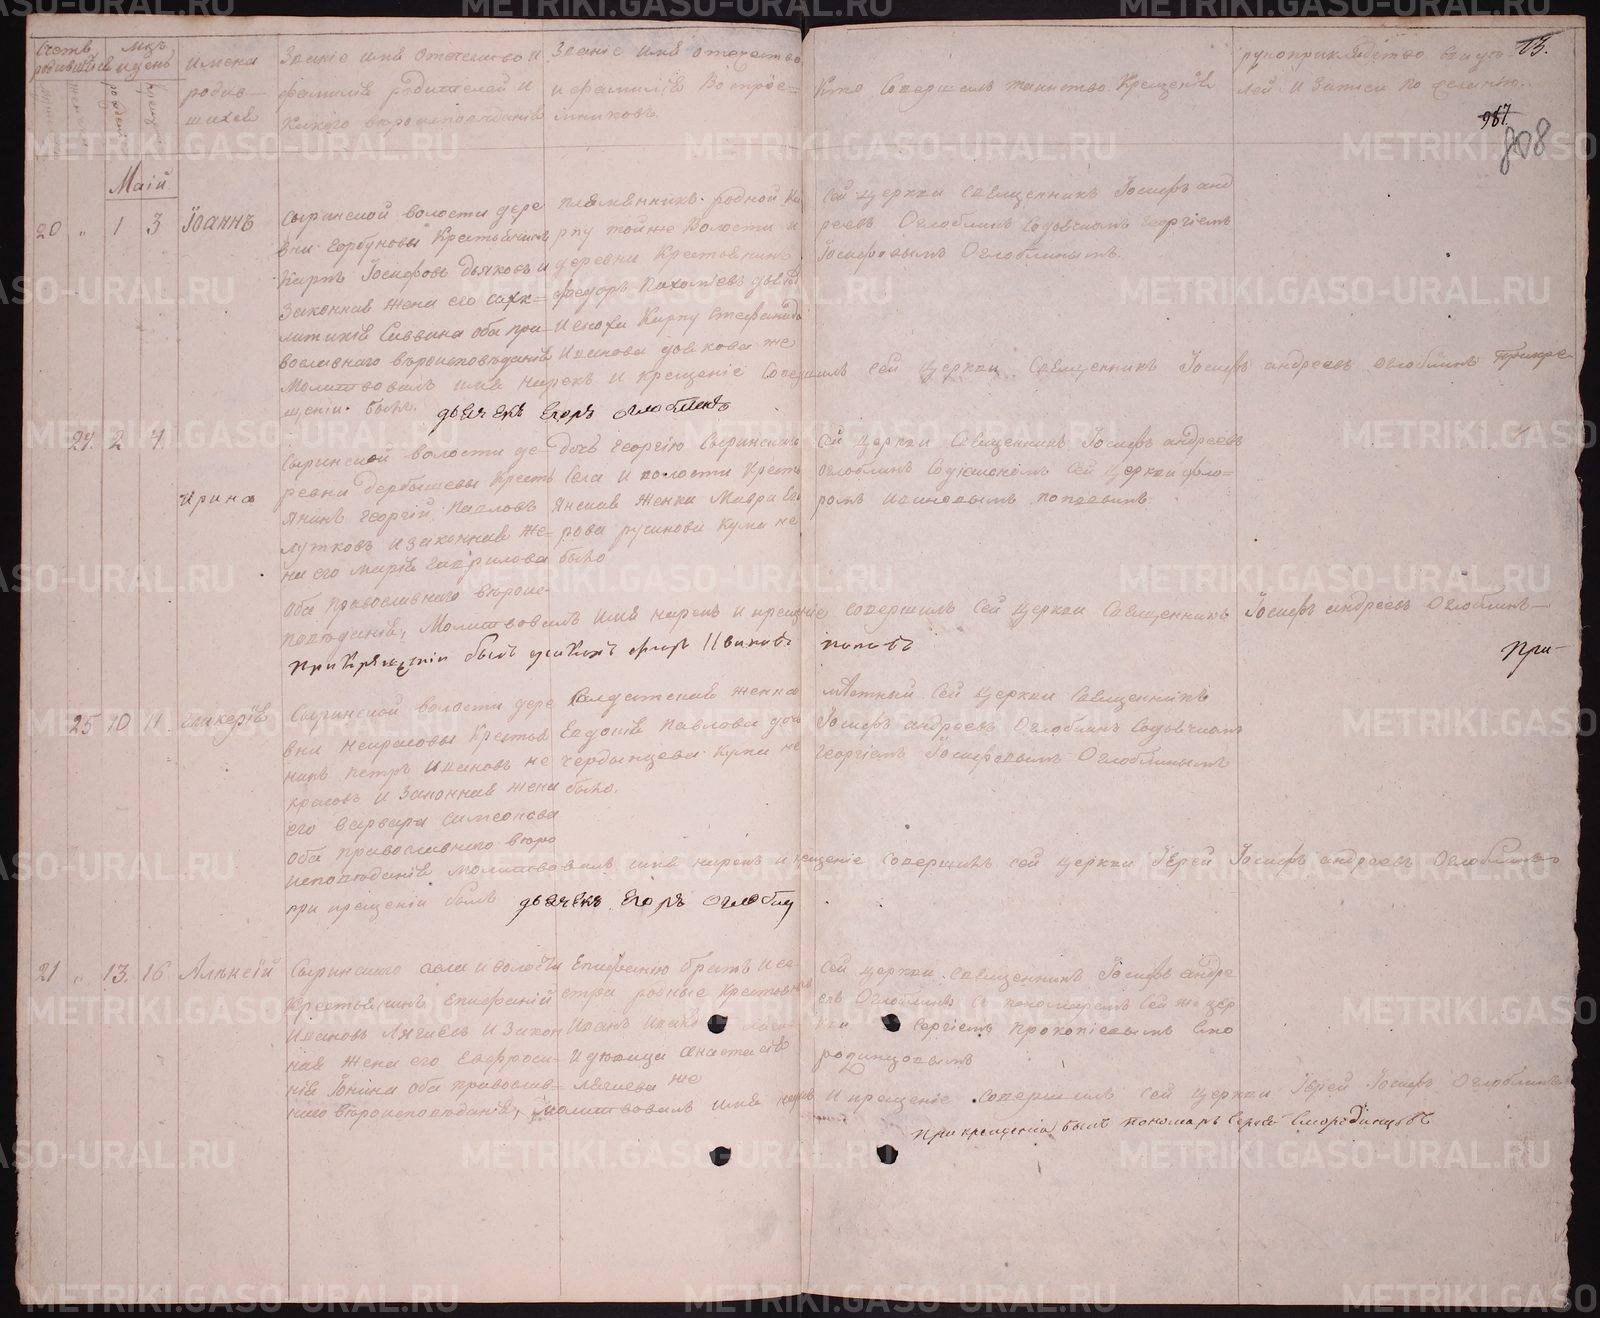 Счетъ родившихся
Мцъ и день
Имена родив-
шихся
Званіе имя отечество и
фамилія родителей и
какого вѣроисповѣданія
Званіе имя отечество
и фамилія воспрее-
мниковъ
Кто совершалъ таинство Крещенія
рукоприкладство
лей и записи по желанію.
13.
987
808
Маій
20 " 1 3 Іоаннъ
Сыринской волости дере
вни Горбуновы Крестьянинъ
Карпъ Іосифовъ Дьяковъ и
Законная жена его
Саввина оба пра-
вославнаго вѣроисповѣданія
племянникъ родной Ка
рпу тойже Волости и
деревни Крестьянинъ
Федоръ Пахомьевъ
Карпу Стефанида
Иванова Дьякова же
Сей церкви Священникъ Іосифъ анд
реевъ Оглоблинъ Содьячкомъ Георгіемъ
Іосифовымъ Оглоблинымъ.
Молитвовалъ имя нарекъ и крещеніе совершилъ сей церкви Священникъ Іосифъ андреевъ Оглоблинъ Прикре-
щеніи былъ. дьячекъ Егоръ Оглоблинъ
24. 2 4. Ирина
Сыринской волости де-
ревни Дербышевы Кресть
янинъ Георгій Павловъ
лутковъ и законная же-
на его Марія Гаврилова
Оба православнаго вѣроис-
повѣданія,
Дочь Георгію Сыринскаго
Села и волости Кресть
янская Женка Мавра
рова русинова Кума не
было
Сей церкви Священникъ Іосифъ андреевъ
Оглоблинъ Содіакономъ Сей Церкви фло-
ромъ Ивановымъ поповымъ.
Молитвовалъ имя нарекъ и крещеніе совершилъ Сей церкви Священникъ Іосифъ андреевъ Оглоблинъ
При Крещеніи былъ Ивановъ поповъ
При-
25 10 11. Гликерія
Сыринской волости дере
вни Некрасовы Крестья
нинъ Петръ Ивановъ Не
красовъ и Законная жена
его Варвара Симеонова
Оба православнаго вѣро
исповѣданія
Солдатская женка
Евдокія Павлова дочь
Чердынцева Кума не
было.
мѣтный Сей церкви Священникъ
Іосифъ андреевъ Оглоблинъ Содьячкомъ
Георгіемъ Іосифовымъ Оглоблинымъ
молитвовалъ имя нарекъ и крещеніе совершилъ сей церкви Іерей Іосифъ андреевъ Оглоблинъ
при крещеніи былъ дьячекъ Егоръ Оглоблин
21 " 13. 16 Алексій
Сыринскаго села и волости
Крестьянинъ Епифаній
Ивановъ Лягаевъ и Закон
ная жена его Евфроси-
нія Іонина оба православ-
наго вѣроисповѣданія,
Епифанію братъ и се-
стра родные Крестьян
Иванъ
и дѣвица Анастасія
лягаева же
Сей церкви Священникъ Іосифъ андре
евъ Оглоблинъ Спономаремъ Сей же цер
кви Сергіемъ Прокопіевымъ Смо
родинцовымъ
молитвовалъ имя нарекъ и крещеніе совершилъ сей церкви Іерей Іосифъ Оглоблинъ
При крещеніи былъ пономарь Сергей Смородинцовъ
METRIKI.GASO-URAL.RU